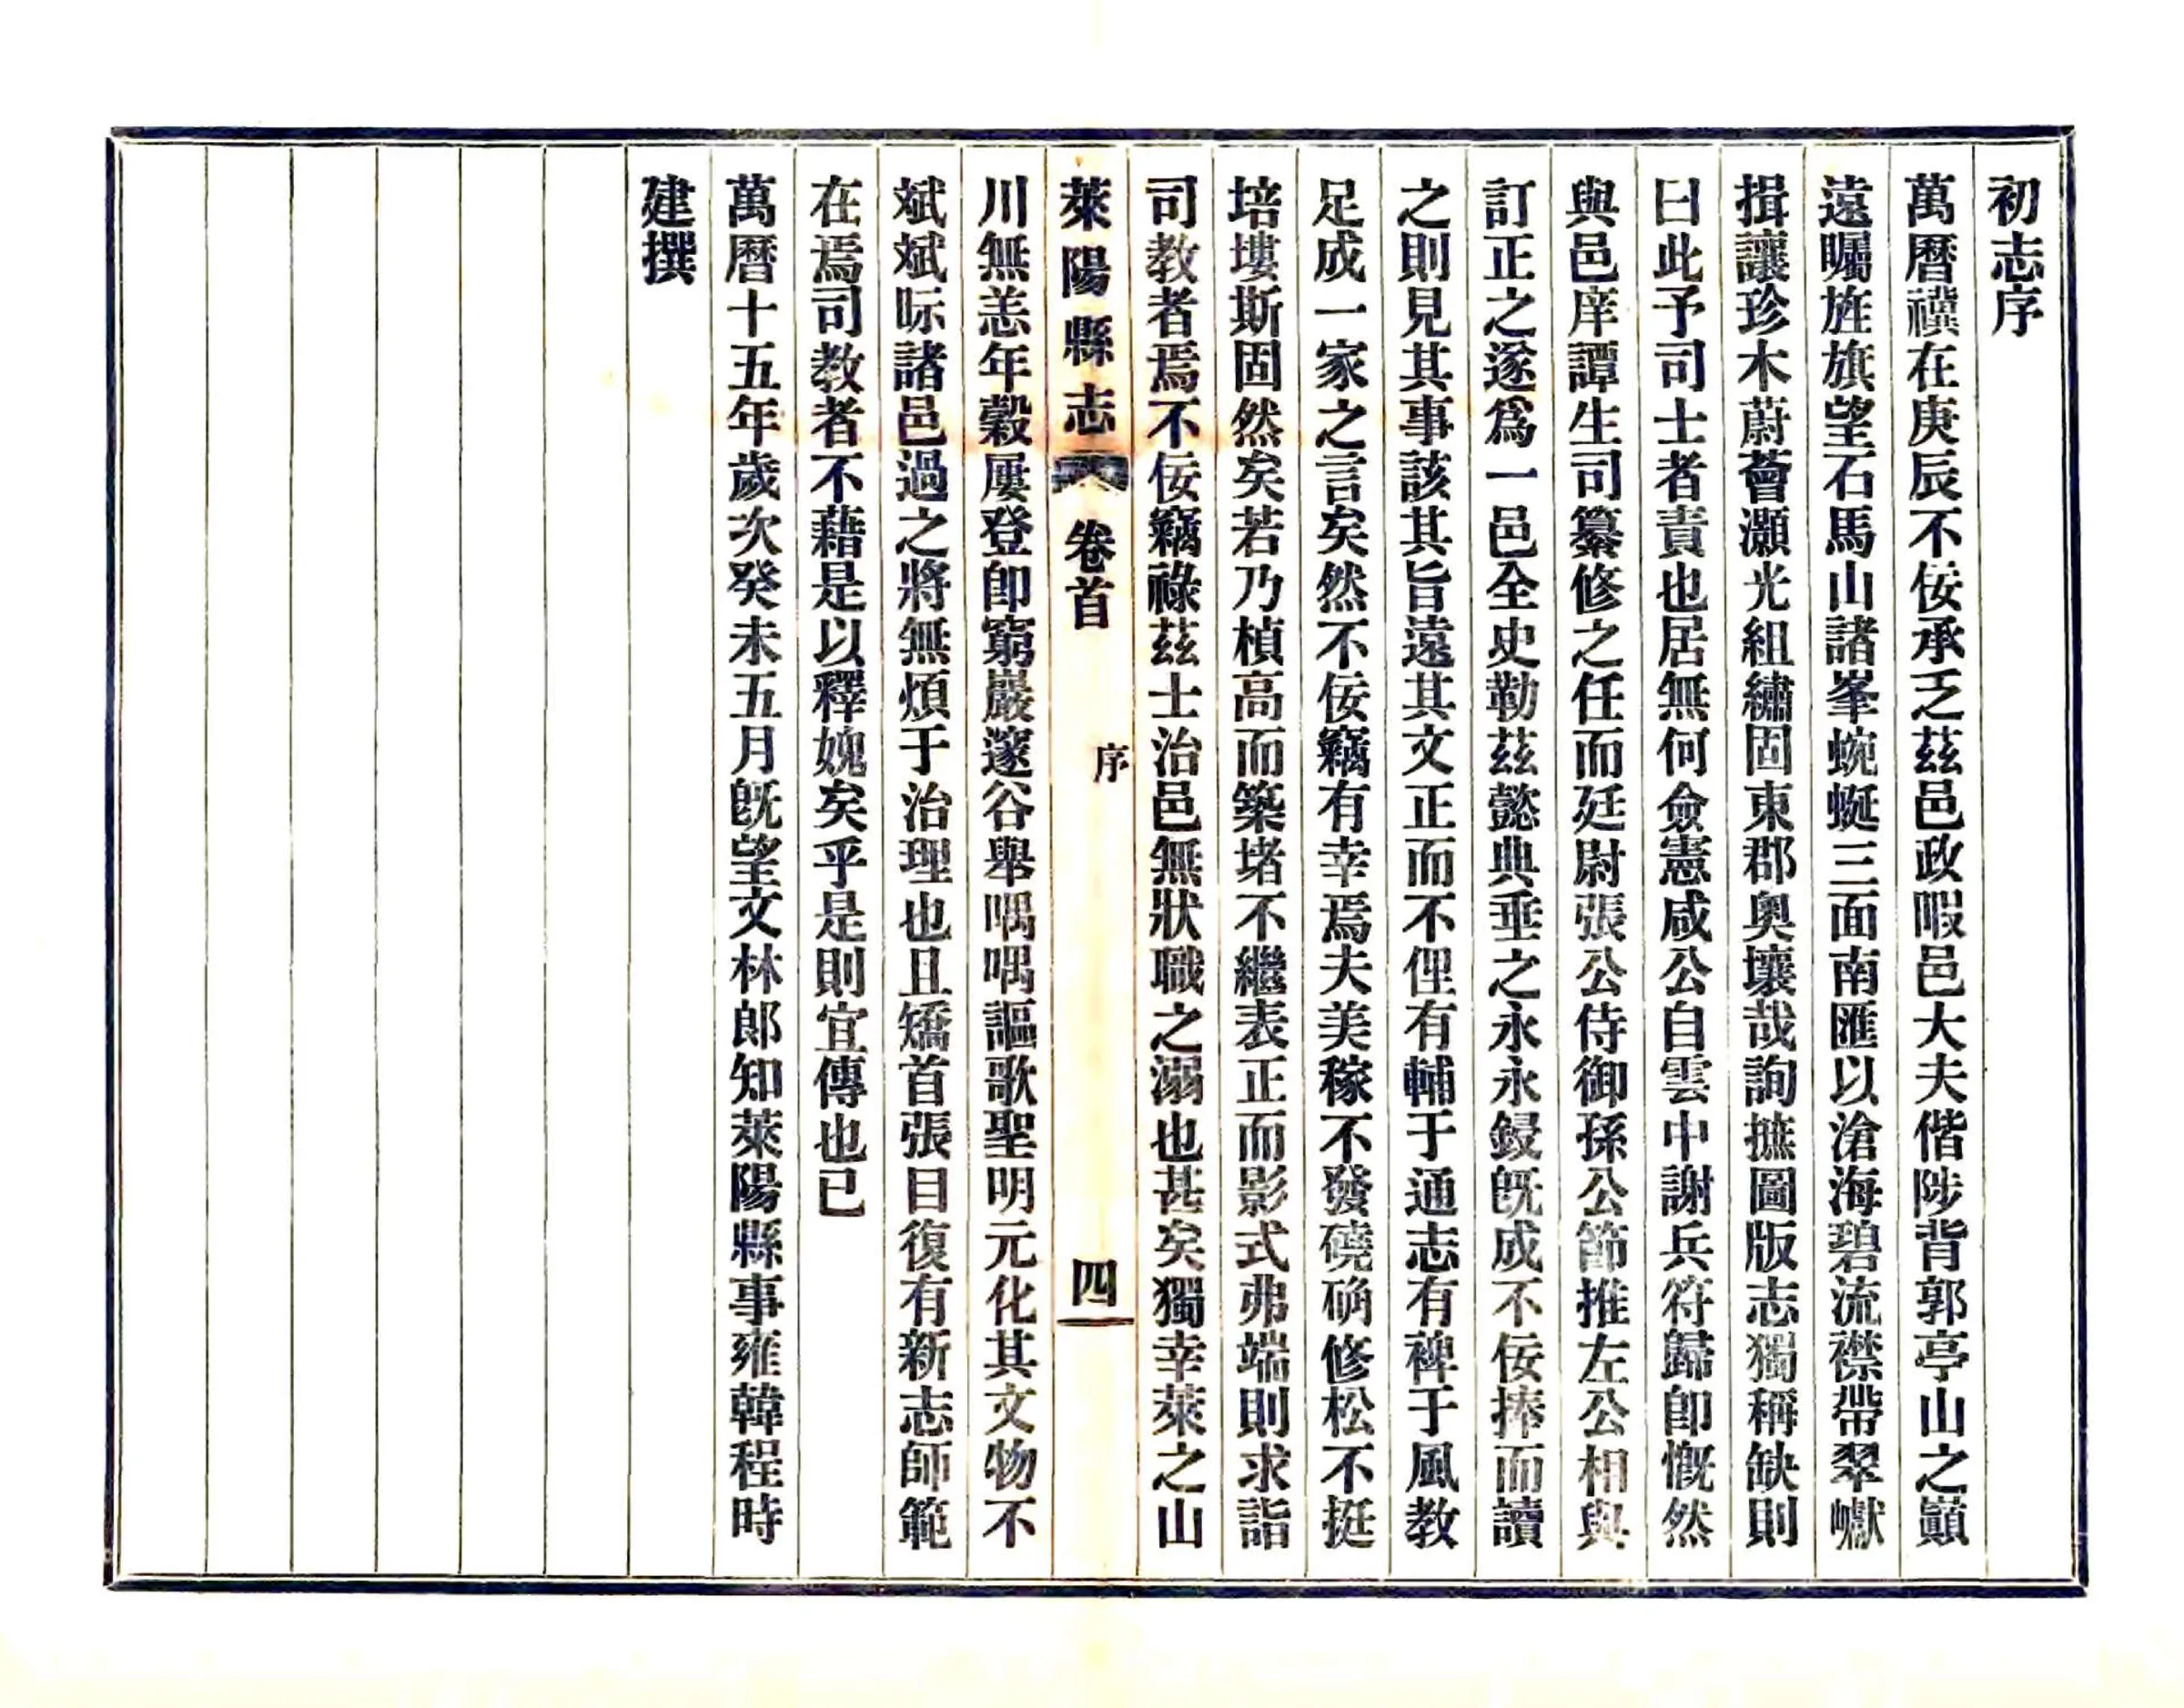 初志序
萬曆禩在庚辰不佞承乏茲邑政暇邑大夫偕陟背郭亭山之巔
遠矚旌旗望石馬山諸峯蜿蜒三面南匯以滄海碧流襟帶翠巘
揖讓珍木蔚薈灝光組繡固東郡奧壤哉詢摭圖版志獨稱缺則
曰此予司士者責也居無何僉憲咸公自雲中謝兵符歸卽慨然
與邑庠譚生司纂修之任而廷尉張公侍御孫公節推左公相與
訂正之遂爲一邑全史勒茲懿典垂之永永鋟旣成不佞捧而讀
之則見其事該其旨遠其文正而不俚有輔于通志有裨于風教
足成一家之言矣然不佞竊有幸焉夫美稼不發磽确修松不挺
培塿斯固然矣若乃楨高而築堵不繼表正而影式弗端則求詣
司教者焉不佞竊祿茲士治邑無狀職之溺也甚矣獨幸萊之山
萊陽縣志 卷首 序 四
川無恙年穀屢登卽窮巖邃谷舉喁喁謳歌聖明元化其文物不
斌斌眎諸邑過之將無煩于治理也且矯首張目復有新志師範
在焉司教者不藉是以釋媿矣乎是則宜傳也已
萬曆十五年歲次癸未五月旣望文林郎知萊陽縣事雍韓程時
建撰